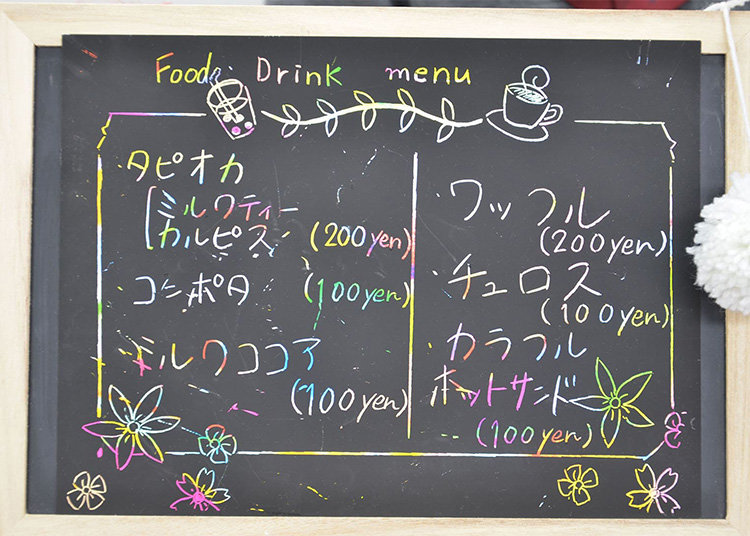 Food Drink menu
・タピオカ
ミルクティー
カルピス (200yen)
・コンポタ (100yen)
・ミルクココア
(100yen)
・ワッフル
(200yen)
・チュロス
(100yen)
・カラフル
ホットサンド
(100yen)